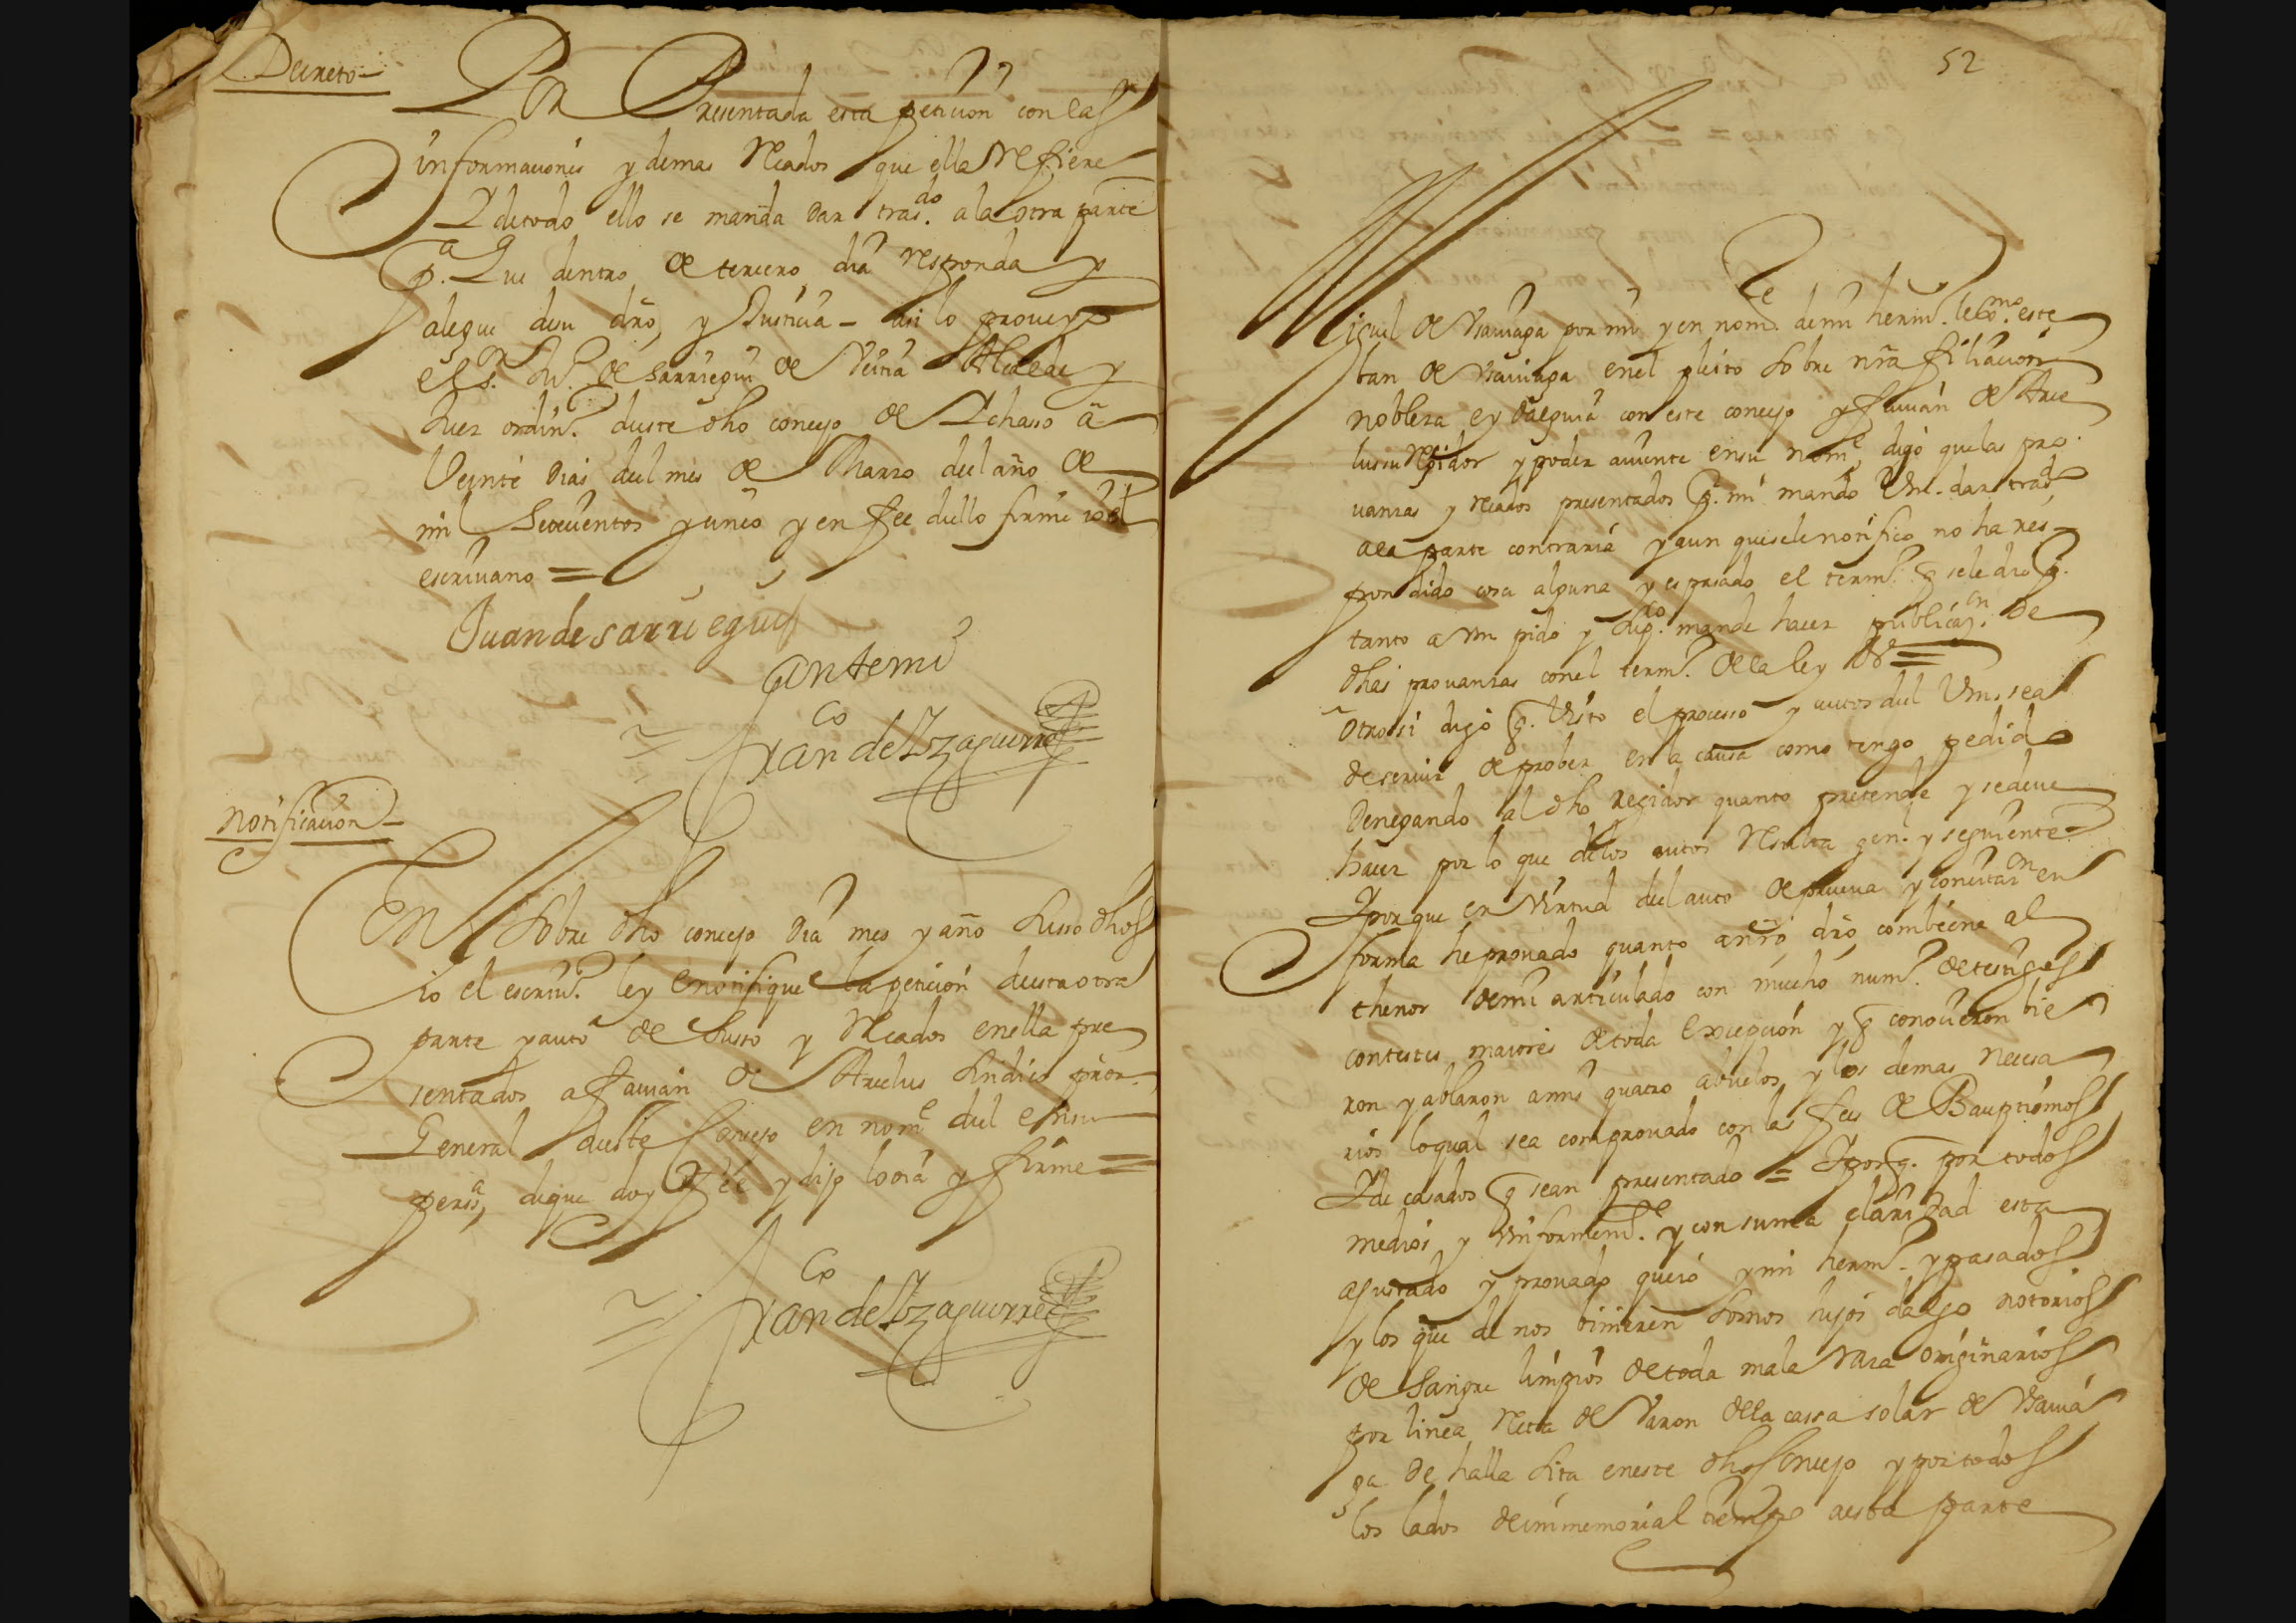 Decreto
Por Presentada esta peticion con las
informaciones y demas Recados que ella Refiere
Y de todo ello se manda dar tras.do a la otra parte
p.a Que dentro de tercero dia responda y
alegue de su dro, y Justicia - asi lo proveyo
el s.r Ju.o de Sarriegui de Alcalde y
Juez ordin.o deste dho concejo de Ychaso a
Veinte dias del mes de Marzo del año de
mil Setecientos y uno y en fee dello firme io el
escrivano =
Juan de sarriegui
ante mi
Fran.co de Yzaguirre
notificacion
En Sobre dho concejo dia mes y año Susso dhos
io el escriv.o ley e notifique la peticion desta otra
parte y auto de Suso y Recados en ella pre
sentados a Favian de Arcelus Sindico pror.
General deste Concejo en nom.e del en su
persa, de que doy fee y dijo lo oia y firme =
Fran.co de Yzaguirre
52
Miguel de Vsavia­ga por mi y en nom.e de mi herm.o lex.mo este
ban de Vsaviaga en el pleito sobre nra filiacion
nobleza e ydalguia con este concejo y favian de Arce
lus su Regidor y poder auiente en su nom.e digo que las pro
uanzas y Recados presentados p.r mi mando Vm. dar tras.do
a la parte contraria y aun que se le notifico no ha res
pondido cosa alguna y es pasado el term.o q se le dio p.r
tanto a vm pido y sup.co mande hacer publicaz.n de
dhas prouanzas con el term.o de la ley &.a =
Otrosi digo q. Visto el processo y autos del Vm. sea
de servir de prober en la causa como tengo pedido
Denegando al dho regidor quanto pretende y se deve
hacer por lo que de los autos Resulta gen.l y siguiente =
Y porque en Virtud del auto de prueva y con citaz.n en
forma he prouado quanto a nro dro combiene al
thenor de mi articulado con mucho num.o de testigos
contestes maiores de toda excepcion y q conocieron bie
ron y ablaron a mis quatro abuelos y los demas Necesa
rios lo qual se a comprouado con las fees de Bauptismos
Y de casados q se an presentado = Y por q. por todos
medios y Vniformem.te y con suma claridad esta
ajustado y prouado que io y mi herm.o y pasados
y los que de nos binieren Somos hijos dalgo notorios
de Sangre limpios de toda mala raza originarios
por linea Recta de Varon de la cassa solar de Vsauia
ga Se halla Sita en este dho Concejo y por todos
los lados de immemorial tiempo a esta parte